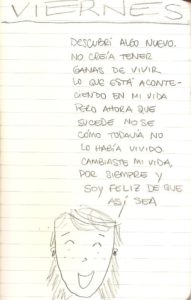 VIERNES
DESCUBRÍ ALGO NUEVO.
NO CREÍA TENER
GANAS DE VIVIR
LO QUE ESTÁ ACONTE-
CIENDO EN MI VIDA
PERO AHORA QUE
SUCEDE NO SE
CÓMO TODAVÍA NO
LO HABÍA VIVIDO.
CAMBIASTE MI VIDA,
POR SIEMPRE Y
SOY FELIZ DE QUE
ASÍ SEA